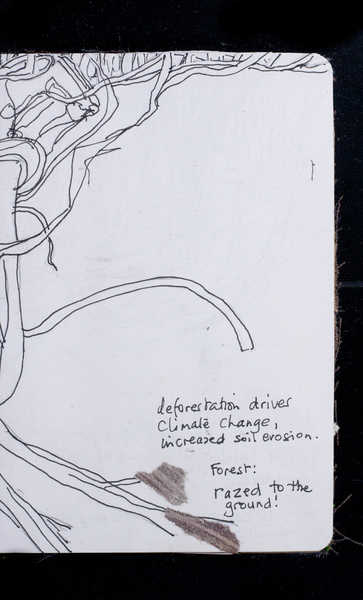 deforestation drives
Climate Change,
increased soil erosion.
Forest:
razed to the
ground!